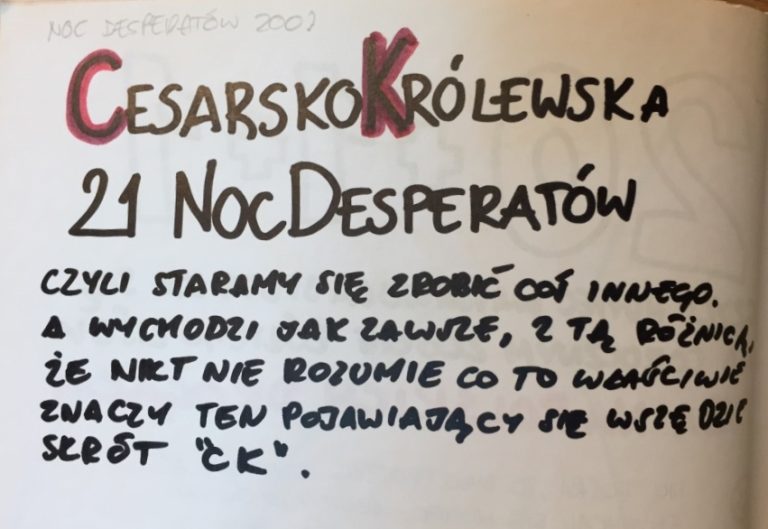 NOC DESPERATÓW 2002
CESARSKOKRÓLEWSKA
21 NOCDESPERATÓW
CZYLI STARAMY SIĘ ZROBIĆ COŚ INNEGO.
A WYCHODZI JAK ZAWSZE, Z TĄ RÓŻNICĄ,
ŻE NIKT NIE ROZUMIE CO TO WŁAŚCIWIE
ZNACZY TEN POJAWIAJĄCY SIĘ WSZĘDZIE
SKRÓT "CK".